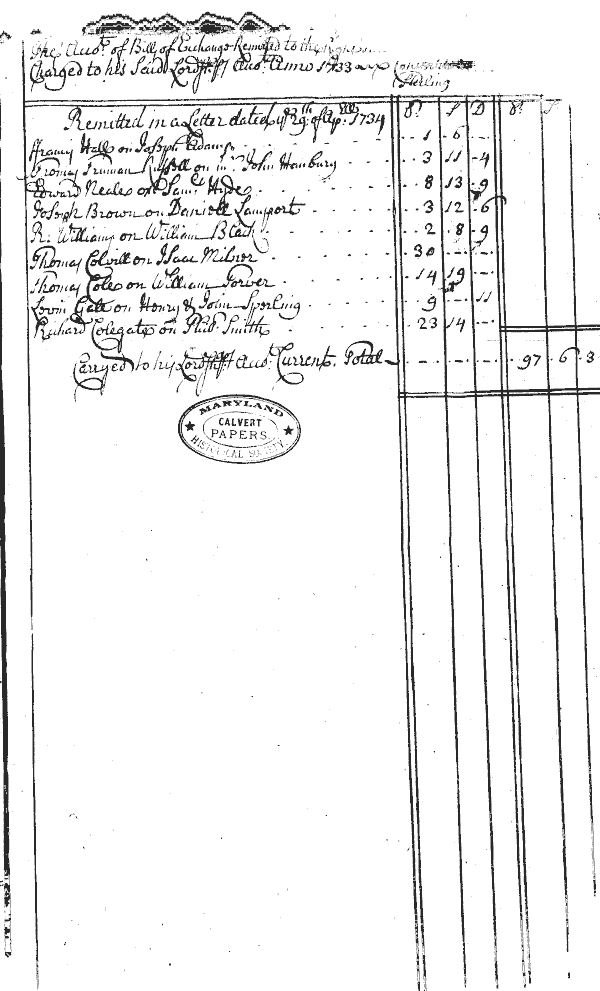 The Acct. of Bills of Exchange Remitted to the Right
Charged to his Said Lordsp Acct. Anno 1733
Sterling
Remitted in a Letter dated ye 29th of Ap: 1734 S D
Francis Hall on Joseph Adams 1 6 —
Thomas Truman on mr. John Hanbury 3 11 4
Edward Neale on Sam: Hyde 8 13 9
Joseph Brown on Daniell Lamport 3 12 6
R: Williams on William Black 2 8 9
Thomas Colvill on Isaac Milner 30 — —
Thomas Cole on William Torver 14 19 —
Levin Gale on Henry & John Sperling 9 — 11
Richard Colegate on Phil: Smith 23 14 —
Carryed to his Lordsps Acct. Current. Total 97 6 3
MARYLAND
CALVERT
PAPERS
HISTORICAL SOCIETY